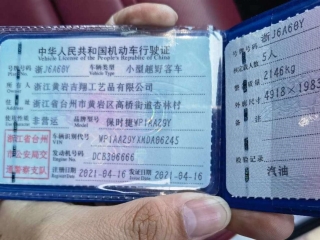 中华人民共和国机动车行驶证
Vehicle License of the People's Republic of China
号牌号码 浙J6A6BY 车辆类型 小型越野客车
Vehicle Type
浙江黄岩吉翔工艺品有限公司
浙江省台州市黄岩区高桥街道杏林村
非营运 品牌型号 保时捷WP1AA29Y
Model
浙江省台州 车辆识别代号 WP1AA29YXMDA06245
VIN
市公安局交 发动机号码 DCB306666
Engine No.
通警察支队 注册日期 2021-04-16 发证日期 2021-04-16
Register Date Issue Date
号牌号码 浙J6A6BY
5人
2146kg
4918×1983
汽油
检验记录